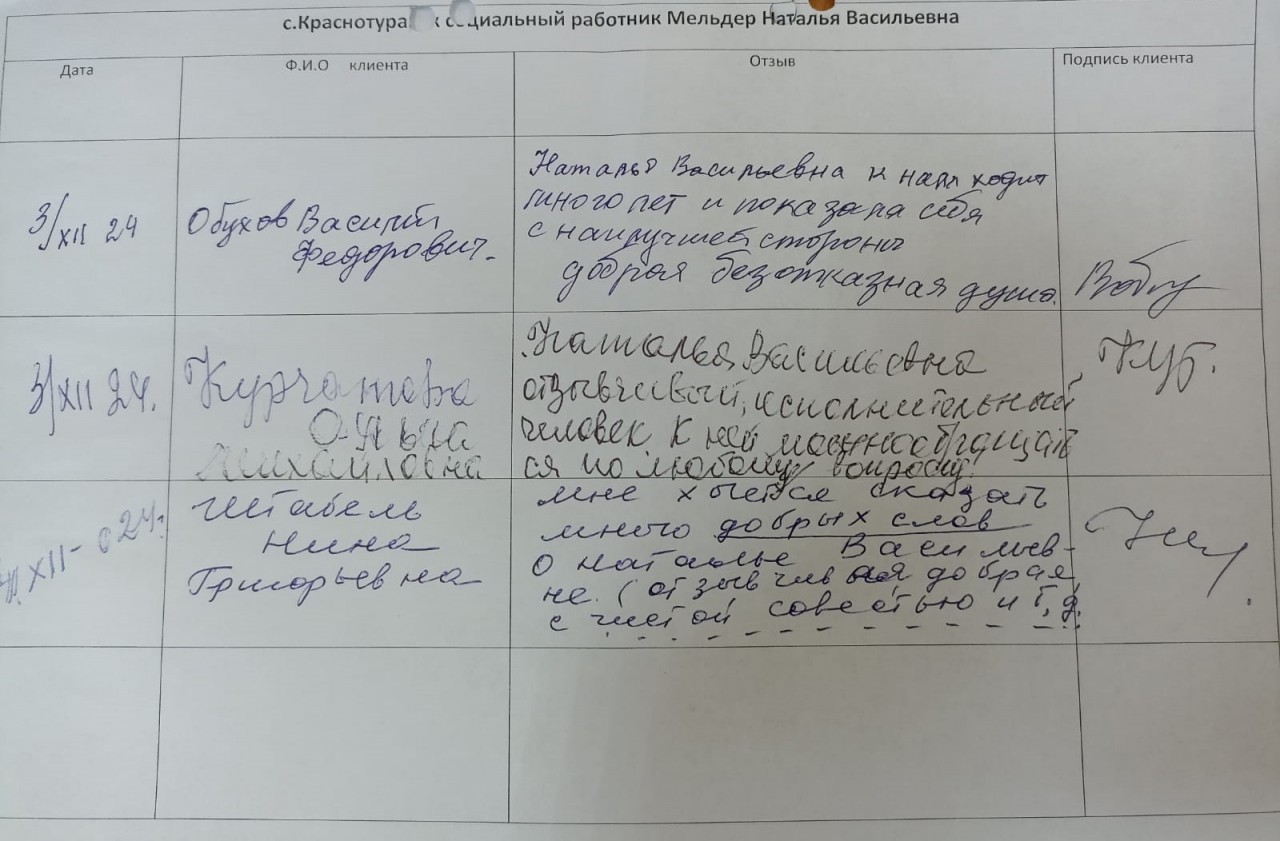 с.Краснотура к социальный работник Мельдер Наталья Васильевна
Дата Ф.И.О клиента Отзыв Подпись клиента
3/XII 24
Обухов Василий
Федорович.
Наталья Васильевна к нам ходит
много лет и показала себя
с наилучшей стороны
добрая безотказная душа.
3/XII 24.
Курчатова
Ольга
Михайловна
Наталья Васильевна
отзывчивый, исполнительный
человек к ней можно обращат
ся по любому вопросу!
XII-
Штабель
Нина
Григорьевна
мне хочется сказать
много добрых слов
о Наталье Васильев-
не. (отзывчивая добрая,
с чистой совестью и т, д.